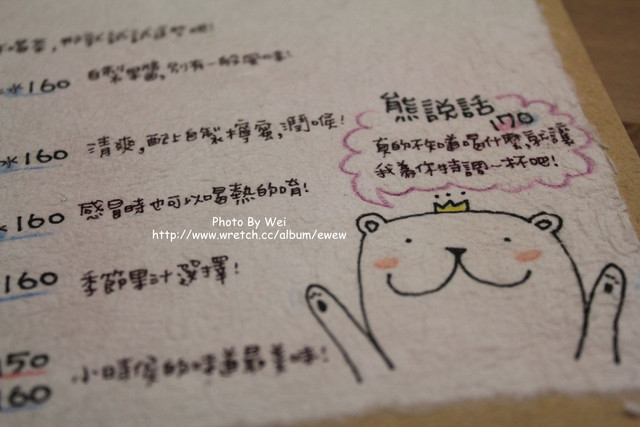 160 自製果醬,別有一般風味!
熊說話
170
真的不知道喝什麼,就讓
我為你特調~杯吧!
冰160 清爽,配上自製檸蜜,潤喉!
160 感冒時也可以喝熱的唷!
Photo By Wei
http://www.wretch.cc/album/ewew
160 季節果汁選擇!
150 小時候的味道最美味!
160